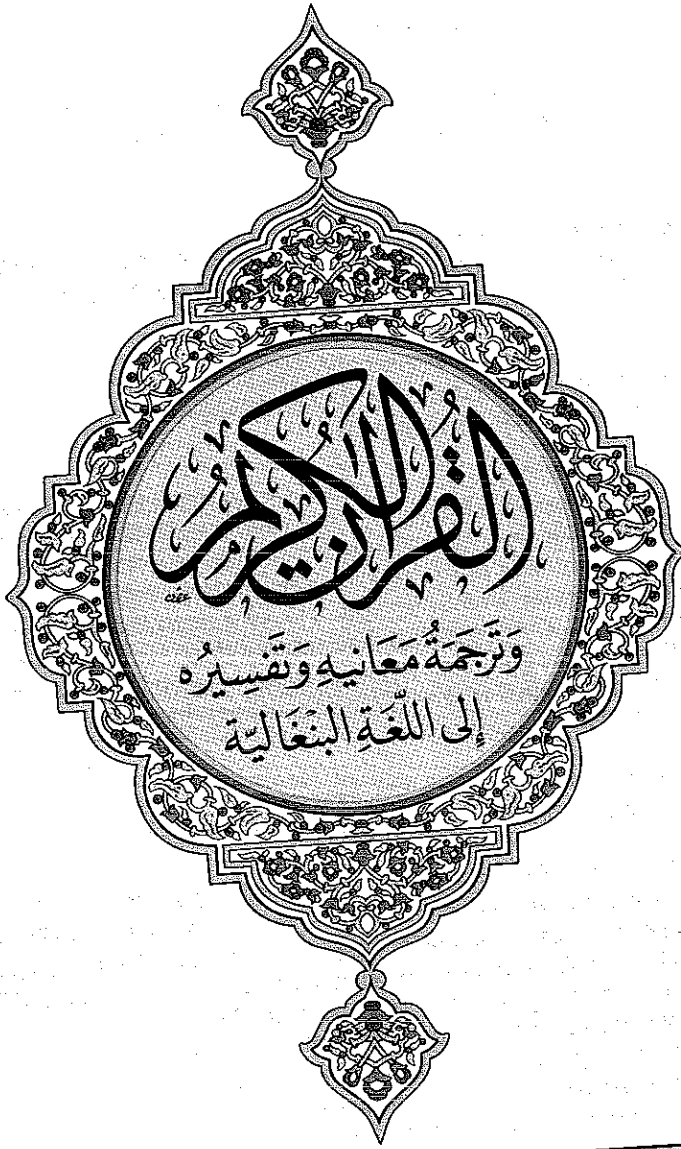 القرآن الكريم
وَتَرجَمَةُ مَعَانيهِ وَتَفسِيرُه
إلى اللُّغَةِ البنْغَاليَّة